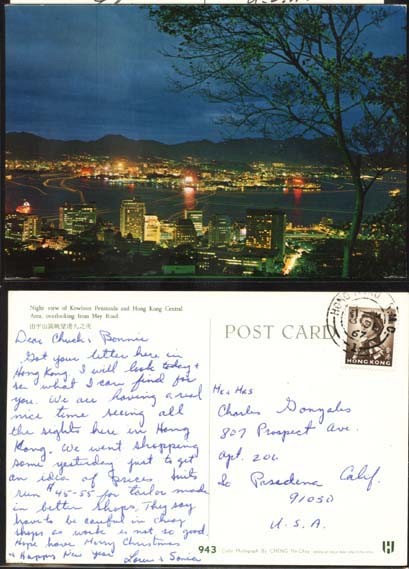 Night view of Kowloon Peninsula and Hong Kong Central
Area, overlooking from May Road.
由半山區眺望港九之夜
Dear Chuck & Bonnie
Got your letter here in
Hong Kong. I will look today &
see what I can find for
you. We are having a real
nice time seeing all
the sights here in Hong
Kong. We went shopping
some yesterday just to get
an idea of prices. Suits
run $45-55 for tailor made
in better shops. They say
have to be careful in cheap
shops as work is not so good.
Hope have Merry Christmas
& Happy New Year
Love & Sonia
POST CARD
HONG KONG
67
HONG KONG
Mr & Mrs
Charles Gonzales
807 Prospect Ave.
Apt. 206
So Pasadena Calif.
91030
U.S.A.
943 Color Photograph By CHENG
H